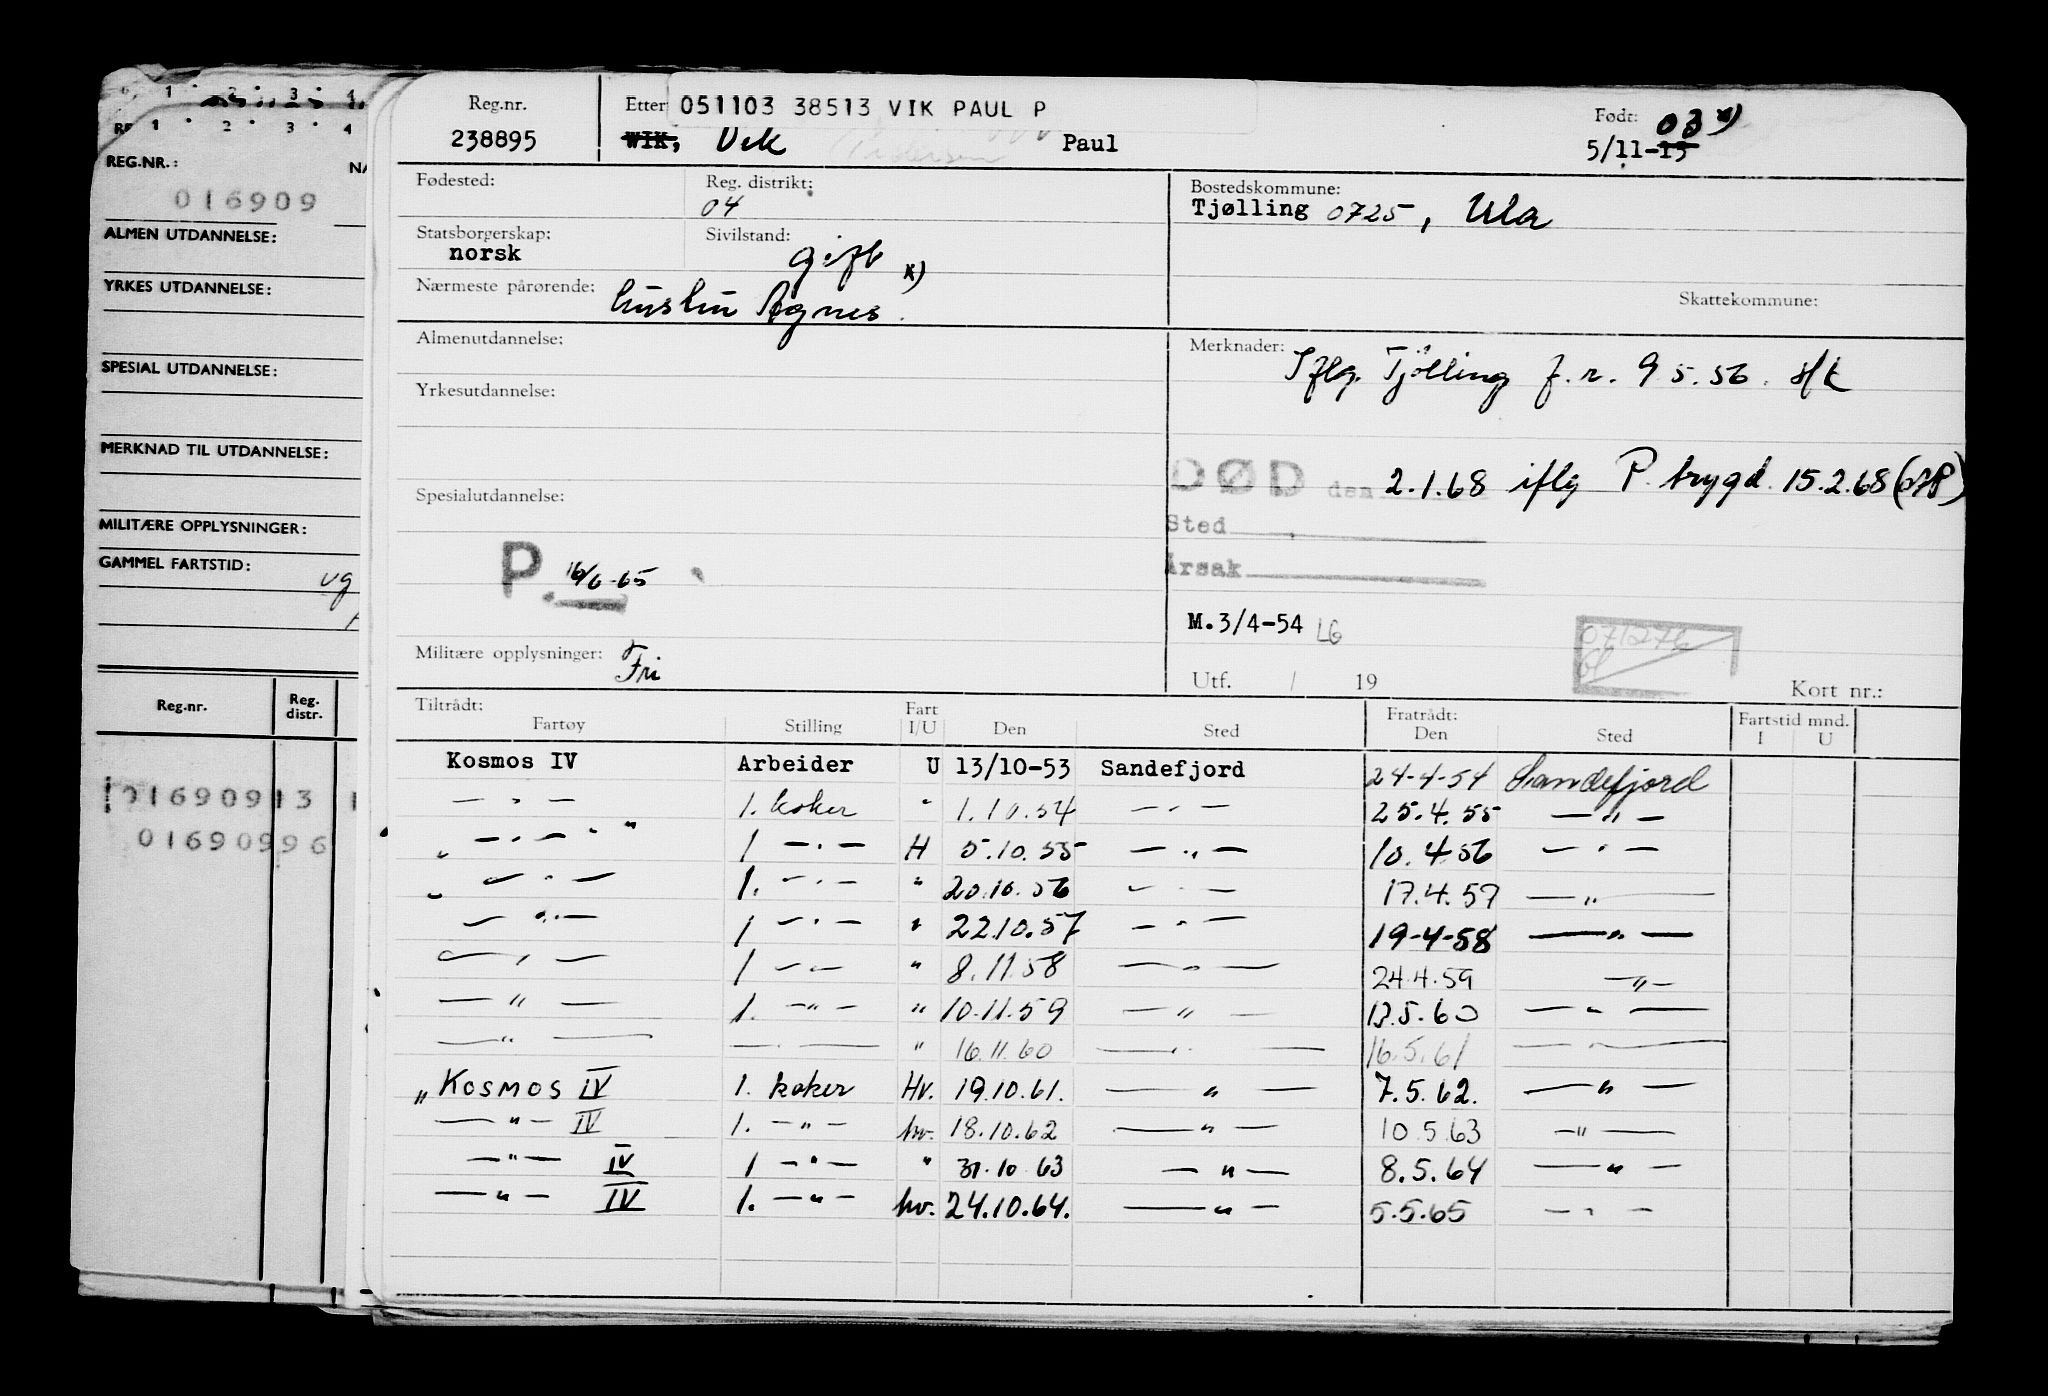 1 · 2 · 3 · 4
1 · 2 · 3 4
REG.NR.:
016909
ALMEN UTDANNELSE:
YRKES UTDANNELSE:
SPESIAL UTDANNELSE:
MERKNAD TIL UTDANNELSE:
MILITÆRE OPPLYSNINGER:
GAMMEL FARTSTID:
Reg.nr. Reg. distr.
01690913
01690996
Reg.nr. 238895
Etter 051103 38513 VIK PAUL P
WIK, Vik Paul
Født: 03 x)
5/11-15
Fødested: Reg. distrikt: 04
Bostedskommune: Tjølling 0725, Ula
Statsborgerskap: norsk Sivilstand: gift
Nærmeste pårørende: hustru Agnes. x)
Skattekommune:
Almenutdannelse:
Merknader: Iflg. Tjølling f.r. 9.5.56. s/k
Yrkesutdannelse:
DØD den 2.1.68 iflg P.trygd. 15.2.68 (078)
Spesialutdannelse:
Sted
P. 16/6-65
Årsak
M.3/4-54 LG
071276
Militære opplysninger: Fri
Utf. / 19 Kort nr.:
Tiltrådt: Fartøy Stilling Fart I/U Den Sted Fratrådt: Den Sted Fartstid mnd. I U
Kosmos IV Arbeider U 13/10-53 Sandefjord 24-4-54 Sandefjord
— " — 1. koker " 1.10.54 — " — 25.4.55 — " —
— " — " 1 — " — H 5.10.55 — " — 10.4.56 — " —
— " — 1. — " — " 20.10.56 — " — 17.4.57 — " —
— " — 1 — " — " 22.10.57 — " — 19-4-58 — " —
— " — 1 — " — " 8.11.58 — " — 24.4.59 — " —
— " — 1. — " — " 10.11.59 — " — 13.5.60 — " —
— " — — " — " 16.11.60 — " — 16.5.61 — " —
" KOSMOS IV 1. koker Hv. 19.10.61. — " — 7.5.62. — " —
— " — IV 1. — " — hv. 18.10.62 — " — 10.5.63 — " —
— " — IV 1 — " — " 31.10.63 — " — 8.5.64 — " —
— " — IV 1. — " — hv. 24.10.64. — " — 5.5.65 — " —